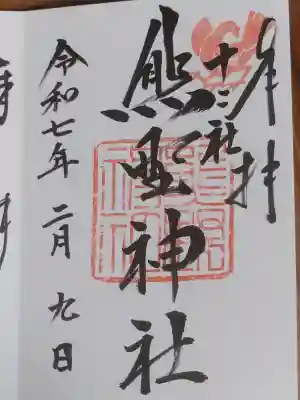 奉拝
十二社
熊野神社
令和七年二月九日